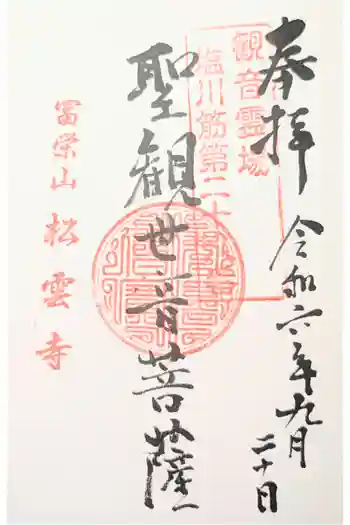 奉拝
令和六年九月
二十日
観音霊場
塩川筋第二十
聖観世音菩薩
冨栄山 松雲寺